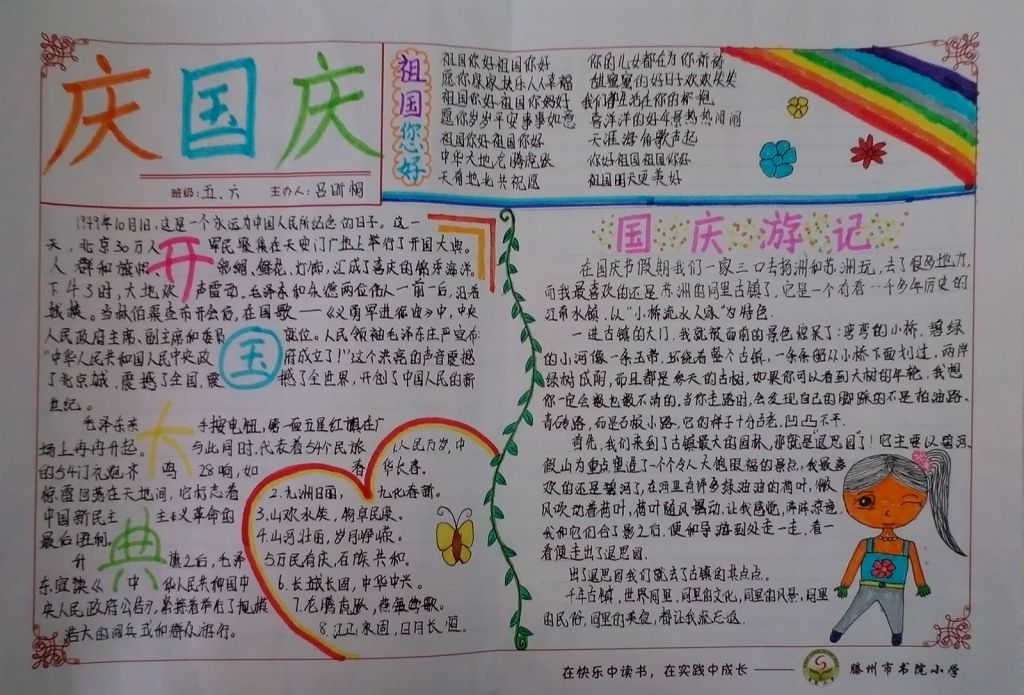 庆国庆
班级:五、六 主办人:吕昕桐
祖国您好
祖国你好祖国你好
愿你保家快乐人人幸福
祖国你好祖国你好
愿你岁岁平安事事如意
祖国你好祖国你好
中华大地龙腾虎跃
天南地北共祝愿
你的儿女都在为你祈祷
甜蜜蜜的好日子欢欢笑笑
我们都生活在你的怀抱
喜洋洋的好年景热热闹闹
天涯海角歌声起
你好祖国祖国你好
祖国明天更美好
开国大典
1949年10月1日,这是一个永远为中国人民所纪念的日子。这一
天,北京30万人 军民聚集在天安门广场上举行了开国大典。
人群和旗帜 彩绸、鲜花、灯饰,汇成了喜庆的锦绣海洋。
下午3时,大地欢 声雷动。毛泽东和朱德两位伟人一前一后,沿着
城楼。当林伯渠宣布开会后,在国歌——《义勇军进行曲》中,中央
人民政府主席、副主席和委员 就位。人民领袖毛泽东庄严宣布:
“中华人民共和国人民中央政 府成立了!”这个洪亮的声音震撼
了北京城,震撼了全国,震 撼了全世界,开创了中国人民的新
世纪。
毛泽东亲 手按电钮,第一面五星红旗在广
场上冉冉升起。 与此同时,代表着54个民族
的54门礼炮齐 鸣 28响,如 春
惊雷回荡在天地间,它标志着
中国新民主 主义革命的
最后胜利。
升 旗之后,毛泽
东宣读《 中 华人民共和国中
央人民政府公告》,紧接着举行了规模
浩大的阅兵式和群众游行。
1.人民万岁,中
华长春。
2.九洲日丽, 九化春新。
3.山欢水笑,物阜民康。
4.山河壮丽,岁月峥嵘。
5.万民有庆,百族共和。
6.长城长固,中华中兴。
7.龙腾虎跃,燕舞莺歌。
8.江山永固,日月长恒。
国庆游记
在国庆节假期我们一家三口去扬州和苏州玩,去了很多地方,
而我最喜欢的还是苏州的同里古镇了。它是一个有着一千多年历史的
江南水镇,以“小桥流水人家”为特色.
一进古镇的大门,我就被面前的景色惊呆了:弯弯的小桥,碧绿
的小河像一条玉带,环绕着整个古镇,一条条船从小桥下面划过,两岸
绿树成阴,而且都是参天的古树,如果你可以看到大树的年轮,我想
你一定会数也数不清的.当你走路时,会发现自己的脚踩的不是柏油路、
青砖路,而是石板小路,它的样子十分古老,凹凸不平.
首先,我们来到了古镇最大的园林,那就是退思园了!它主要以碧河、
假山为重点塑造了一个个令人大饱眼福的景点,我最喜
欢的还是碧河了,在河里有许多绿油油的荷叶,微
风吹动着荷叶,荷叶随风摆动.让我感觉 阵阵凉意
我和它们合了影之后,便和导游到处走一走、看一
看便走出了退思园.
出了退思园我们就去了古镇的其点点。
千年古镇,世界同里,同里的文化,同里的风景,同里
的民俗,同里的美食,都让我流连忘返.
在快乐中读书,在实践中成长—— 滕州市书院小学